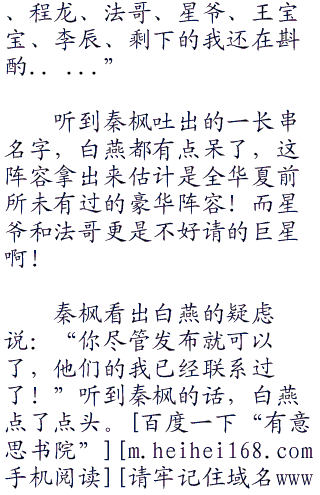 、程龙、法哥、星爷、王宝
宝、李辰、剩下的我还在斟
酌.. ...”
听到秦枫吐出的一长串
名字，白燕都有点呆了，这
阵容拿出来估计是全华夏前
所未有过的豪华阵容！而星
爷和法哥更是不好请的巨星
啊！
秦枫看出白燕的疑虑
说：“你尽管发布就可以
了，他们的我已经联系过
了！”听到秦枫的话，白燕
点了点头。[百度一下“有意
思书院”][m.heihei168.com
手机阅读][请牢记住域名www